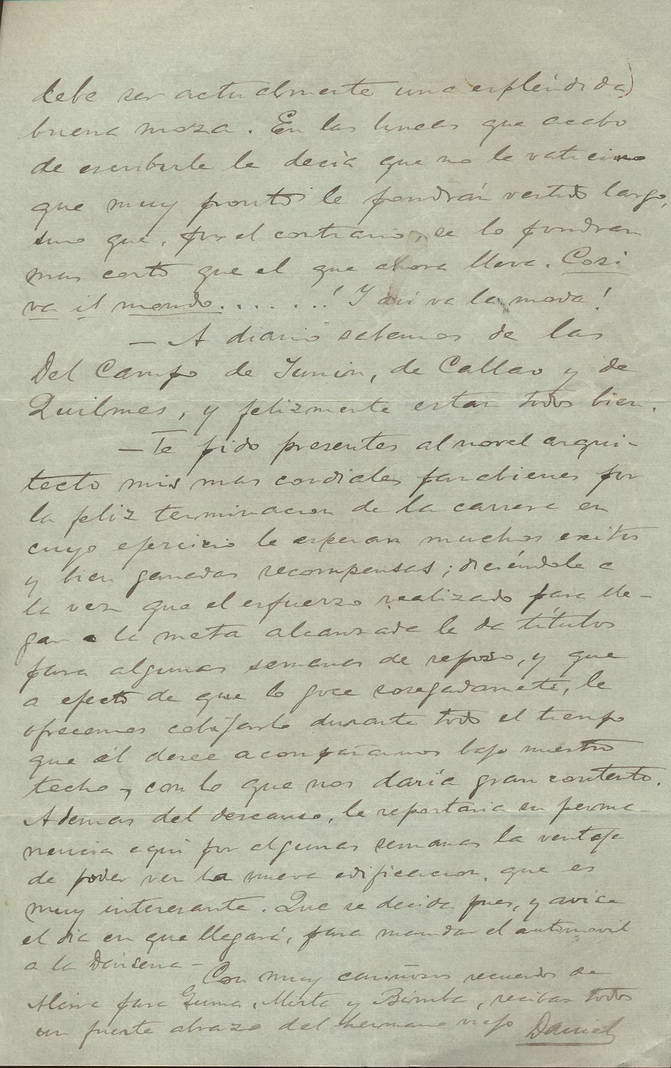 debe ser actualmente una espléndida
buena moza. En las lineas que acabo
de escribirle le decía que no le vaticino
que muy pronto le pondrán vestido largo,
sino que, por el contrario, se lo pondran
mas corto que el que ahora lleva. Cosi
va il mondo......! Y asi va la moda!
— A diario sabemos de las
Del Campo de Junin, de Callao y de
Quilmes, y felizmente estan todos bien.
— Te pido presentes al novel arqui-
tecto mis mas cordiales parabienes por
la feliz terminacion de la carrera en
cuyo ejercicio le esperan muchos exitos
y bien ganadas recompensas; diciéndole a
la vez que el esfuerzo realizado para lle-
gar a la meta alcanzada le da títulos
para algunas semanas de reposo, y que
a efecto de que lo goce sosegadamente, le
ofrecemos cobijarlo durante todo el tiempo
que él desee acompañarnos bajo nuestro
techo, con lo que nos daría gran contento.
Ademas del descanso, le reportaria su perma
nencia aqui por algunas semanas la ventaja
de poder ver la nueva edificacion, que es
muy interesante. Que se decida pues, y avise
el dia en que llegará, para mandar el automovil
a la Darsena — Con muy cariñosos recuerdos de
para Guma, Mirta y Bimba, recibas todos
un fuerte abrazo del hermano viejo Daniel